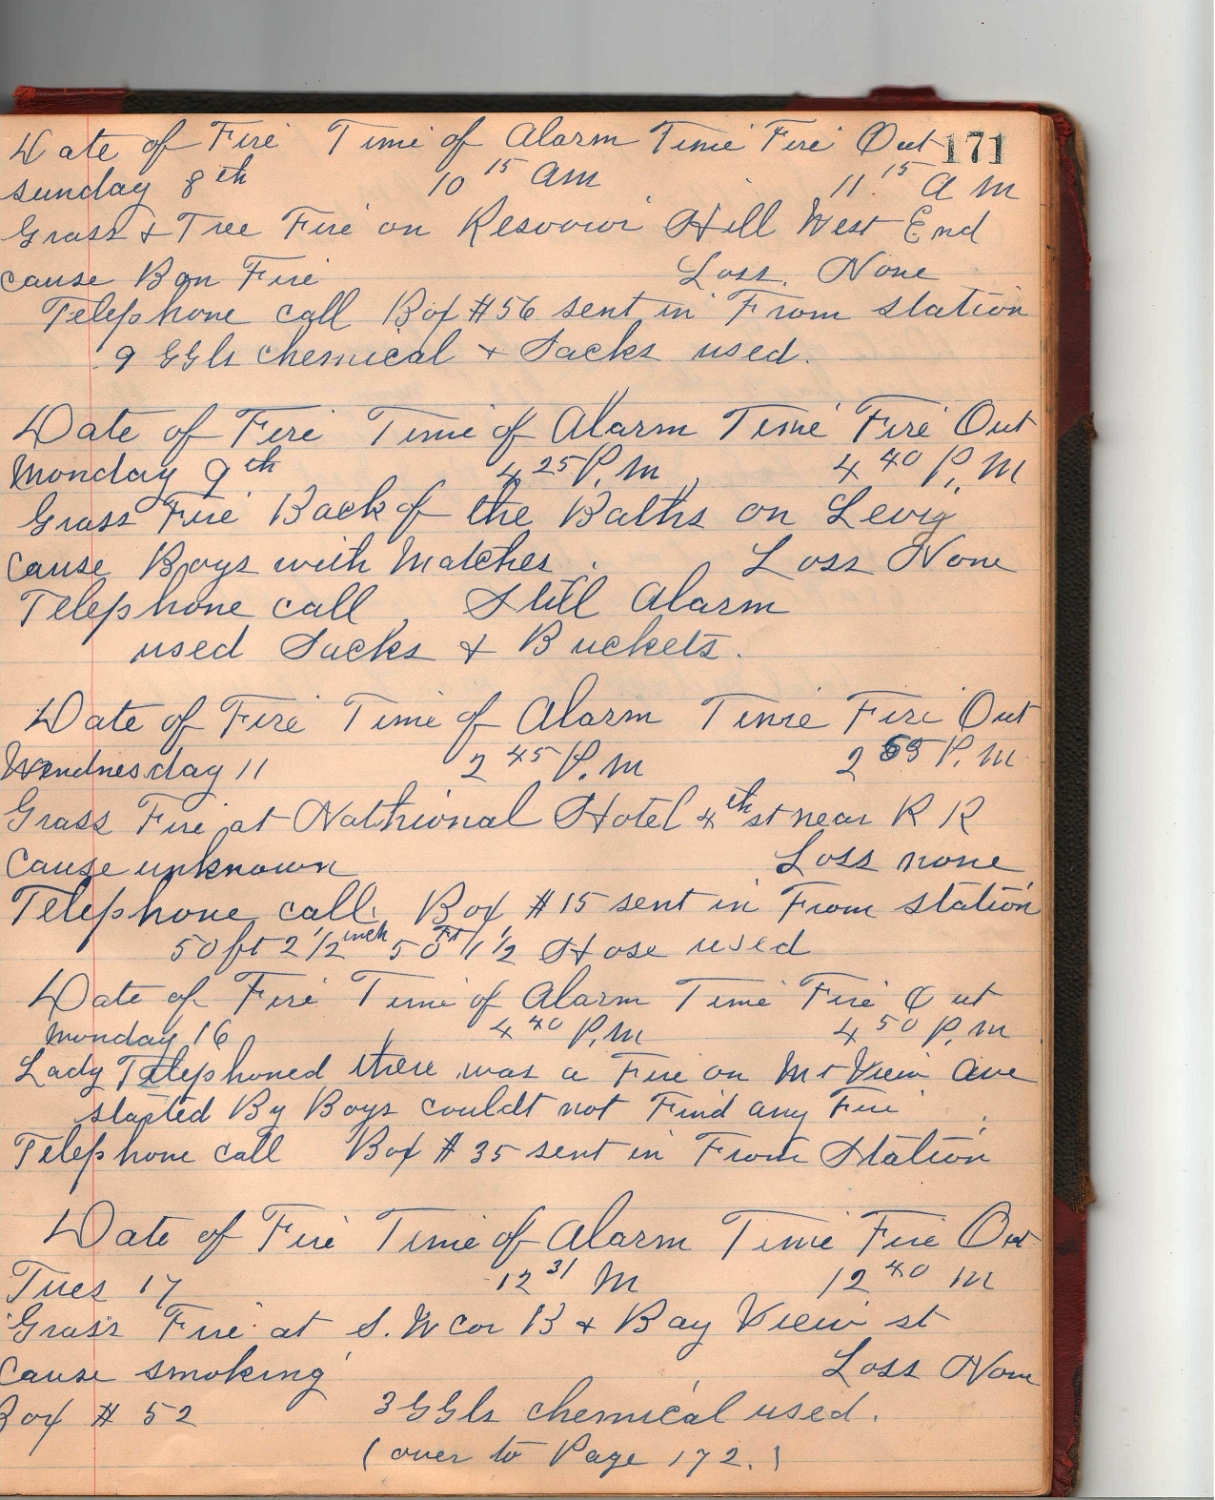 171
Date of Fire Time of Alarm Time Fire Out
Sunday 8th 10 15 am 11.15 A M
Grass & Tree Fire on Resvoir Hill West End
cause Bon Fire Loss. None
Telephone call Box #56 sent in From station
9 GGls chemical & Sacks used.
Date of Fire Time of Alarm Time Fire Out
Monday 9th 4 25 P.M 4 40 P.M
Grass Fire Back of the Baths on Levy
cause Boys with Matches. Loss None
Telephone call, Still Alarm
used Sacks & Buckets.
Date of Fire Time of Alarm Time Fire Out
Wendnesday 11 2 45 P.M 2 P.M.
Grass Fire at Nathional Hotel 4th st near R R
Cause unknown Loss none
Telephone call, Box #15 sent in From station
50 ft 2 1/2 inch 50 Ft 1 1/2 Hose used
Date of Fire Time of Alarm Time Fire Out
Monday 16 4 40 P.M 4 50 P.M
Lady Telephoned there was a Fire on Mt View Ave
started By Boys couldt not Find any Fire
Telephone call Box # 35 sent in From Station
Date of Fire Time of Alarm Time Fire Out
Tues 17 12 31 M 12 40 M
Grass Fire at S.W cor B & Bay View st
Cause smoking Loss None
Box # 52 3 GGls chemical used.
(over to Page 172.)